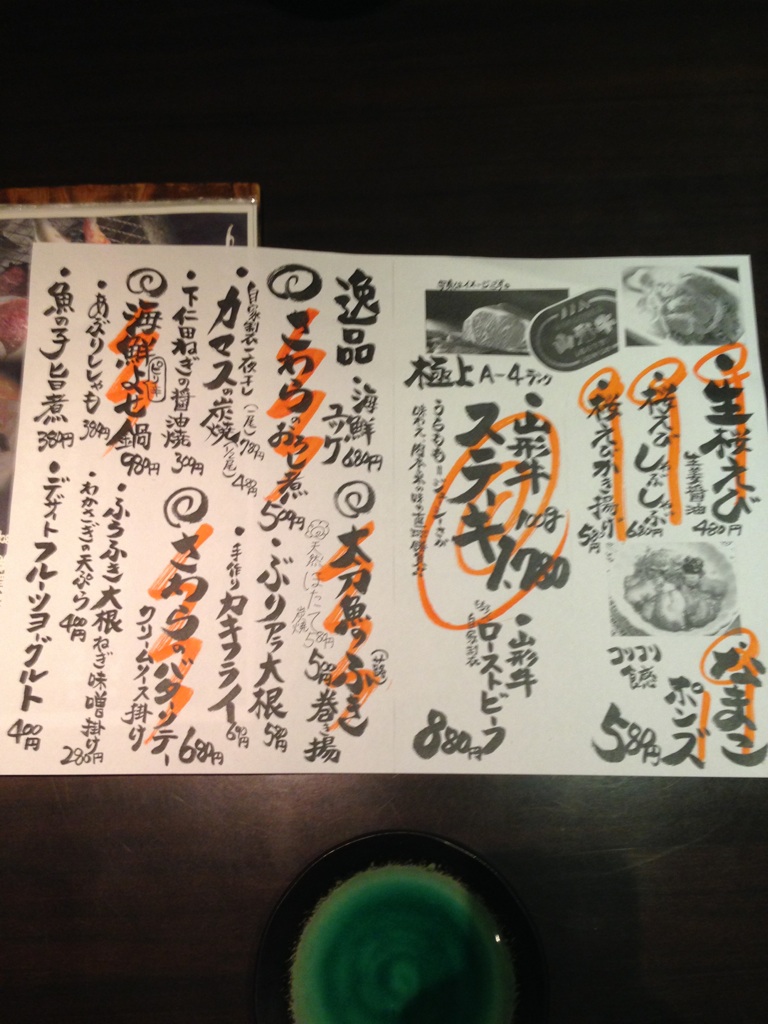 ・生桜えび
生姜醤油
480円
・桜えびしゃぶしゃぶ
680円
・桜えびかき揚げ
580円
なまこ
ポンズ
コリコリ
食感
580円
極上A-4ランク
・山形牛
100g
ステーキ
1.780
うちもも=ジューシーさが
・山形牛
ローストビーフ
880円
逸品
・海鮮
ユッケ
680円
太刀魚の
巻き揚
580円
さわらのおろし煮
500円
天然ほたて
炭焼
580円
・ぶりアラ大根
580円
自家製一夜干し
・カマスの炭焼
(一尾)780円
(1/2尾)480円
・手作りカキフライ
・下仁田ねぎの醤油焼
300円
さわらのバターソテー
クリームソース掛け
680円
海鮮よせ鍋
ピリ辛
980円
・ふろふき大根
ねぎ味噌掛け
280円
・あぶりししゃも
380円
・わかさぎの天ぷら
400円
・魚の子旨煮
380円
・デザートフルーツヨーグルト
400円